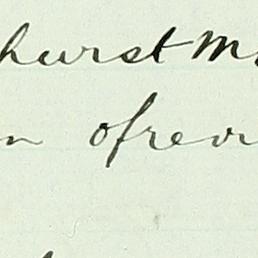 hurst M
n ofrev